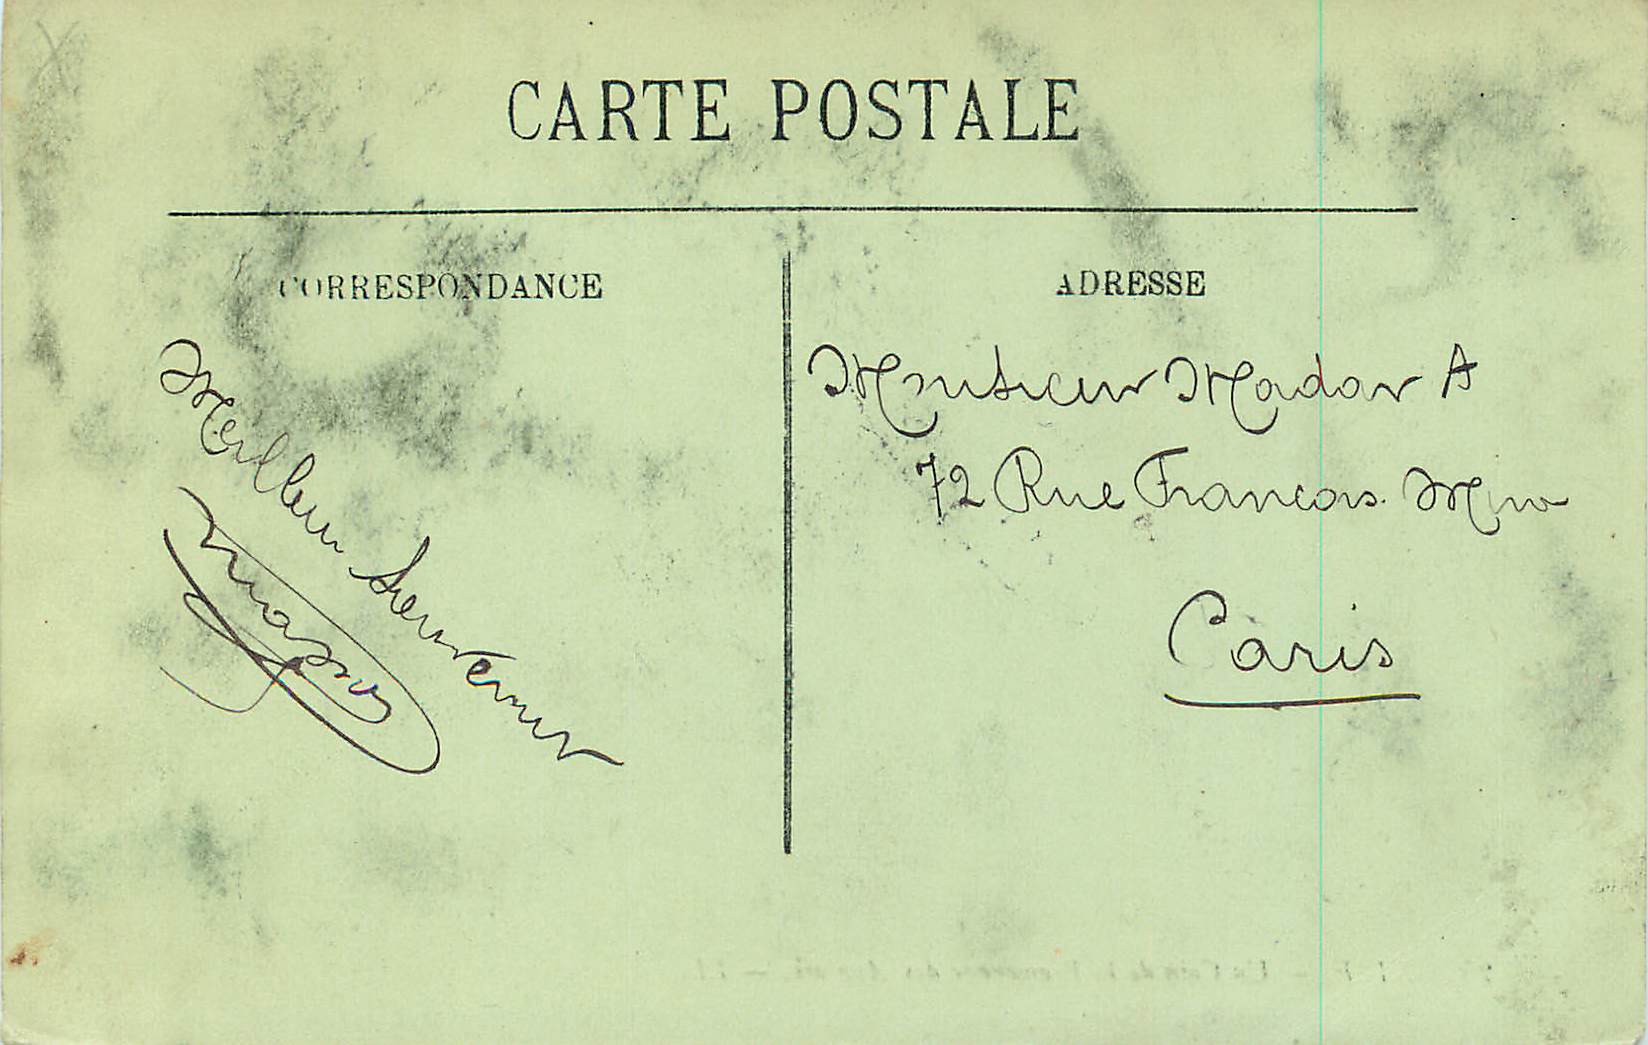 CARTE POSTALE
CORRESPONDANCE
ADRESSE
Meilleur Souvenir
Monsieur Madar A
72 Rue Francois Miro
Paris